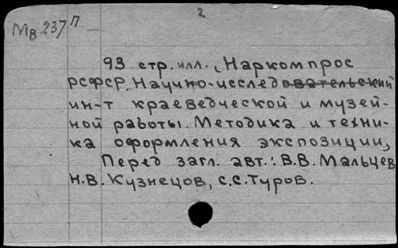 2
Мв 237 п
93 стр. илл. (Наркомпрос
РСФСР. Научно-исследовательский
ин-т краеведческой и музей-
ной работы. Методика и техни-
ка оформления экспозиции)
Перед загл. авт.: В.В. Мальцев,
Н.В. Кузнецов, С.С. Туров.